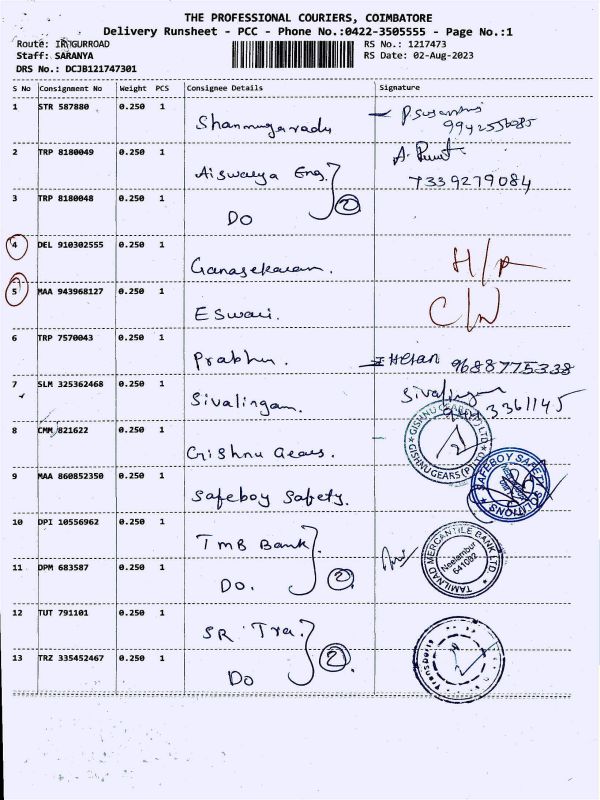 THE PROFESSIONAL COURIERS, COIMBATORE
Delivery Runsheet - PCC - Phone No.:0422-3505555 - Page No.:1
Route: IRUGURROAD
Staff: SARANYA
DRS No.: DCJB121747301
RS No.: 1217473
RS Date: 02-Aug-2023
S No Consignment No Weight PCS Consignee Details Signature
1 STR 587880 0.250 1
Shanmugavadu
9942556085
2 TRP 8180049 0.250 1
Aiswarya Eng. 2
7339279084
3 TRP 8180048 0.250 1
DO
4 DEL 910302555 0.250 1
Ganasekaran.
5 MAA 943968127 0.250 1
Eswari.
6 TRP 7570043 0.250 1
Prabhu. 9688775338
7 SLM 325362468 0.250 1
Sivalingam. Sivalingam
8 CMM 821622 0.250 1
Gishnu Gears. GISHNU GEARS (P) LTD
9 MAA 860852350 0.250 1
Safeboy Safety. SAFEBOY SAFETY SOLUTIONS
10 DPI 10556962 0.250 1
TMB Bank. TAMILNAD MERCANTILE BANK LTD.
Neelambur
641062
11 DPM 683587 0.250 1
DO. 2
12 TUT 791101 0.250 1
SR Tra. 2
13 TRZ 335452467 0.250 1
DO